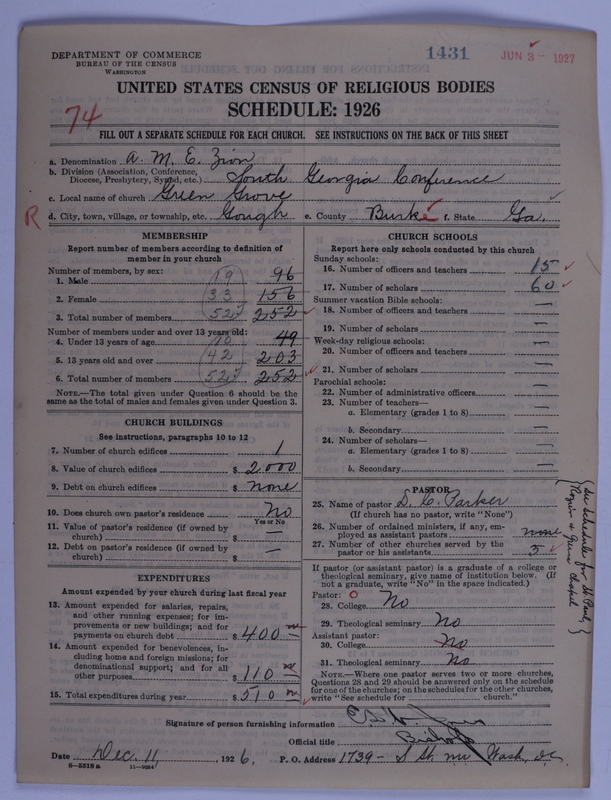 DEPARTMENT OF COMMERCE
BUREAU OF THE CENSUS
WASHINGTON
1431
JUN 3 - 1927
UNITED STATES CENSUS OF RELIGIOUS BODIES
SCHEDULE: 1926
74
FILL OUT A SEPARATE SCHEDULE FOR EACH CHURCH. SEE INSTRUCTIONS ON THE BACK OF THIS SHEET
a. Denomination A. M. E. Zion
b. Division (Association, Conference, Diocese, Presbytery, Synod, etc.) South Georgia Conference
c. Local name of church Green Grove
R d. City, town, village, or township, etc. Gough e. County Burke f. State Ga.
MEMBERSHIP
Report number of members according to definition of member in your church
Number of members, by sex:
1. Male 19 96
2. Female 33 156
3. Total number of members 52 252
Number of members under and over 13 years old:
4. Under 13 years of age 10 49
5. 13 years old and over 42 203
6. Total number of members 52 252
NOTE.—The total given under Question 6 should be the same as the total of males and females given under Question 3.
CHURCH BUILDINGS
See instructions, paragraphs 10 to 12
7. Number of church edifices 1
8. Value of church edifices $ 2000
9. Debt on church edifices $ none
10. Does church own pastor's residence? No
Yes or No
11. Value of pastor's residence (if owned by church) $ —
12. Debt on pastor's residence (if owned by church) $ —
EXPENDITURES
Amount expended by your church during last fiscal year
13. Amount expended for salaries, repairs, and other running expenses; for improvements or new buildings; and for payments on church debt $ 400
14. Amount expended for benevolences, including home and foreign missions; for denominational support; and for all other purposes $ 110
15. Total expenditures during year $ 510
CHURCH SCHOOLS
Report here only schools conducted by this church
Sunday schools:
16. Number of officers and teachers 15
17. Number of scholars 60
Summer vacation Bible schools:
18. Number of officers and teachers —
19. Number of scholars —
Week-day religious schools:
20. Number of officers and teachers —
21. Number of scholars —
Parochial schools:
22. Number of administrative officers —
23. Number of teachers—
a. Elementary (grades 1 to 8) —
b. Secondary —
24. Number of scholars—
a. Elementary (grades 1 to 8) —
b. Secondary —
PASTOR
25. Name of pastor S. C. Parker
(If church has no pastor, write "None")
26. Number of ordained ministers, if any, employed as assistant pastors none
27. Number of other churches served by the pastor or his assistants 3
If pastor (or assistant pastor) is a graduate of a college or theological seminary, give name of institution below. (If not a graduate, write "No" in the space indicated.)
Pastor:
28. College No
29. Theological seminary No
Assistant pastor:
30. College No
31. Theological seminary No
NOTE.—Where one pastor serves two or more churches, Questions 28 and 29 should be answered only on the schedule for one of the churches; on the schedules for the other churches, write "See schedule for church."
(See Schedule for St Paul,
Signature of person furnishing information
Official title Bishop
Date Dec. 11, 1926, P. O. Address 1739- S St. nw Wash, DC
8—5318 a 11—9084